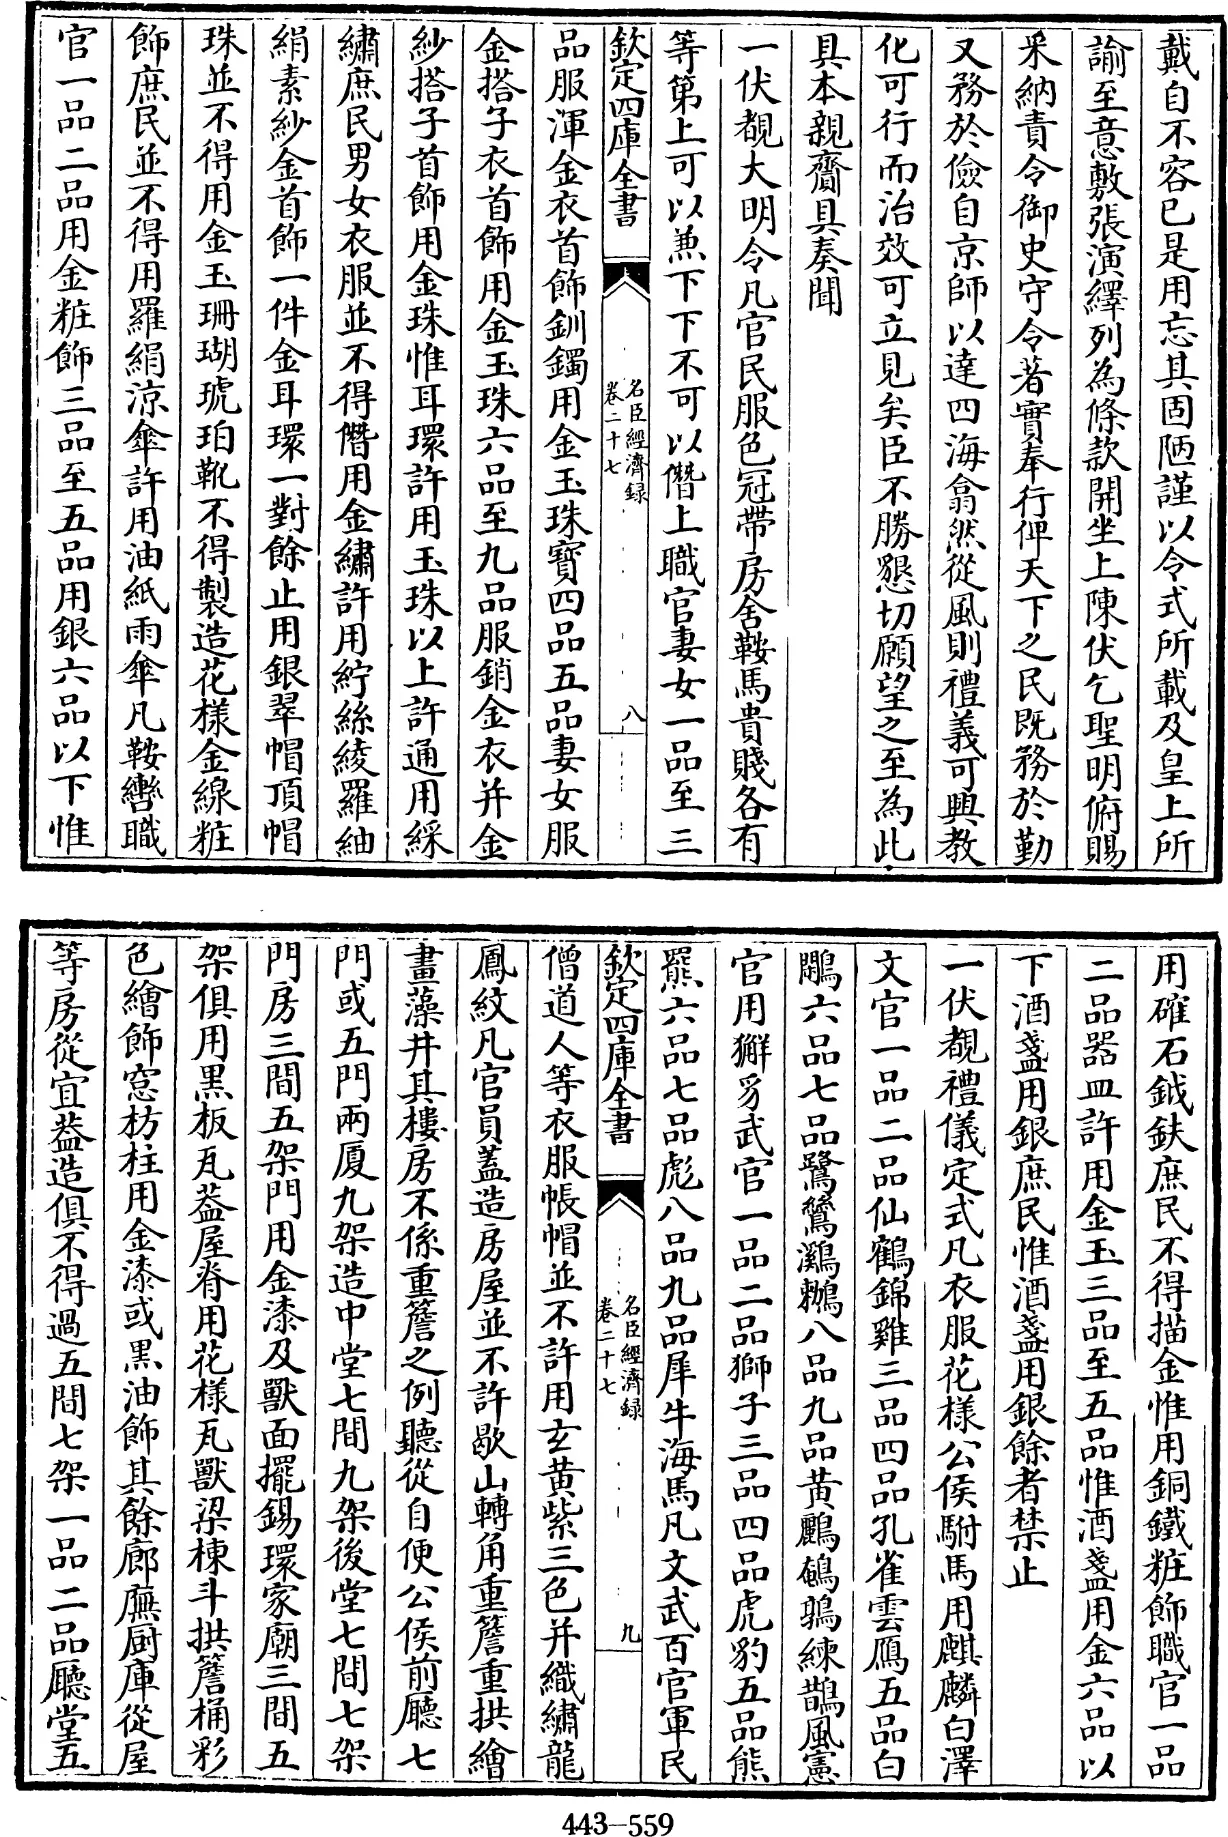 戴自不容已是用忘其固陋謹以令式所載及皇上所
諭至意敷張演繹列為條款開坐上陳伏乞聖明俯賜
采納責令御史守令著實奉行俾天下之民既務於勤
又務於儉自京師以達四海翕然從風則禮義可興教
化可行而治效可立見矣臣不勝懇切願望之至為此
具本親齎具奏聞
一伏覩大明令凡官民服色冠帶房舍鞍馬貴賤各有
等第上可以兼下下不可以僭上職官妻女一品至三
欽定四庫全書
名臣經濟録
卷二十七
八
品服渾金衣首飾釧鐲用金玉珠寶四品五品妻女服
金搭子衣首飾用金玉珠六品至九品服銷金衣并金
紗搭子首飾用金珠惟耳環許用玉珠以上許通用綵
繡庶民男女衣服並不得僭用金繡許用紵絲綾羅紬
絹素紗金首飾一件金耳環一對餘止用銀翠帽頂帽
珠並不得用金玉珊瑚琥珀靴不得製造花樣金線粧
飾庶民並不得用羅絹涼傘許用油紙雨傘凡鞍轡職
官一品二品用金粧飾三品至五品用銀六品以下惟
用確石鉞鈇庶民不得描金惟用銅鐵粧飾職官一品
二品器皿許用金玉三品至五品惟酒盞用金六品以
下酒盞用銀庶民惟酒盞用銀餘者禁止
一伏覩禮儀定式凡衣服花樣公侯駙馬用麒麟白澤
文官一品二品仙鶴錦雞三品四品孔雀雲鴈五品白
鷴六品七品鷺鷥鸂鶒八品九品黃鸝鵪鶉練鵲風憲
官用獬豸武官一品二品獅子三品四品虎豹五品熊
羆六品七品彪八品九品犀牛海馬凡文武百官軍民
欽定四庫全書
名臣經濟録
卷二十七
九
僧道人等衣服帳帽並不許用玄黃紫三色并織繡龍
鳳紋凡官員蓋造房屋並不許歇山轉角重簷重拱繪
畫藻井其樓房不係重簷之例聽從自便公侯前廳七
門或五門兩厦九架造中堂七間九架後堂七間七架
門房三間五架門用金漆及獸面擺錫環家廟三間五
架俱用黑板瓦葢屋脊用花樣瓦獸梁棟斗拱簷桶彩
色繪飾窓枋柱用金漆或黑油飾其餘廊廡厨庫從屋
等房從宜葢造俱不得過五間七架一品二品廳堂五
443-559